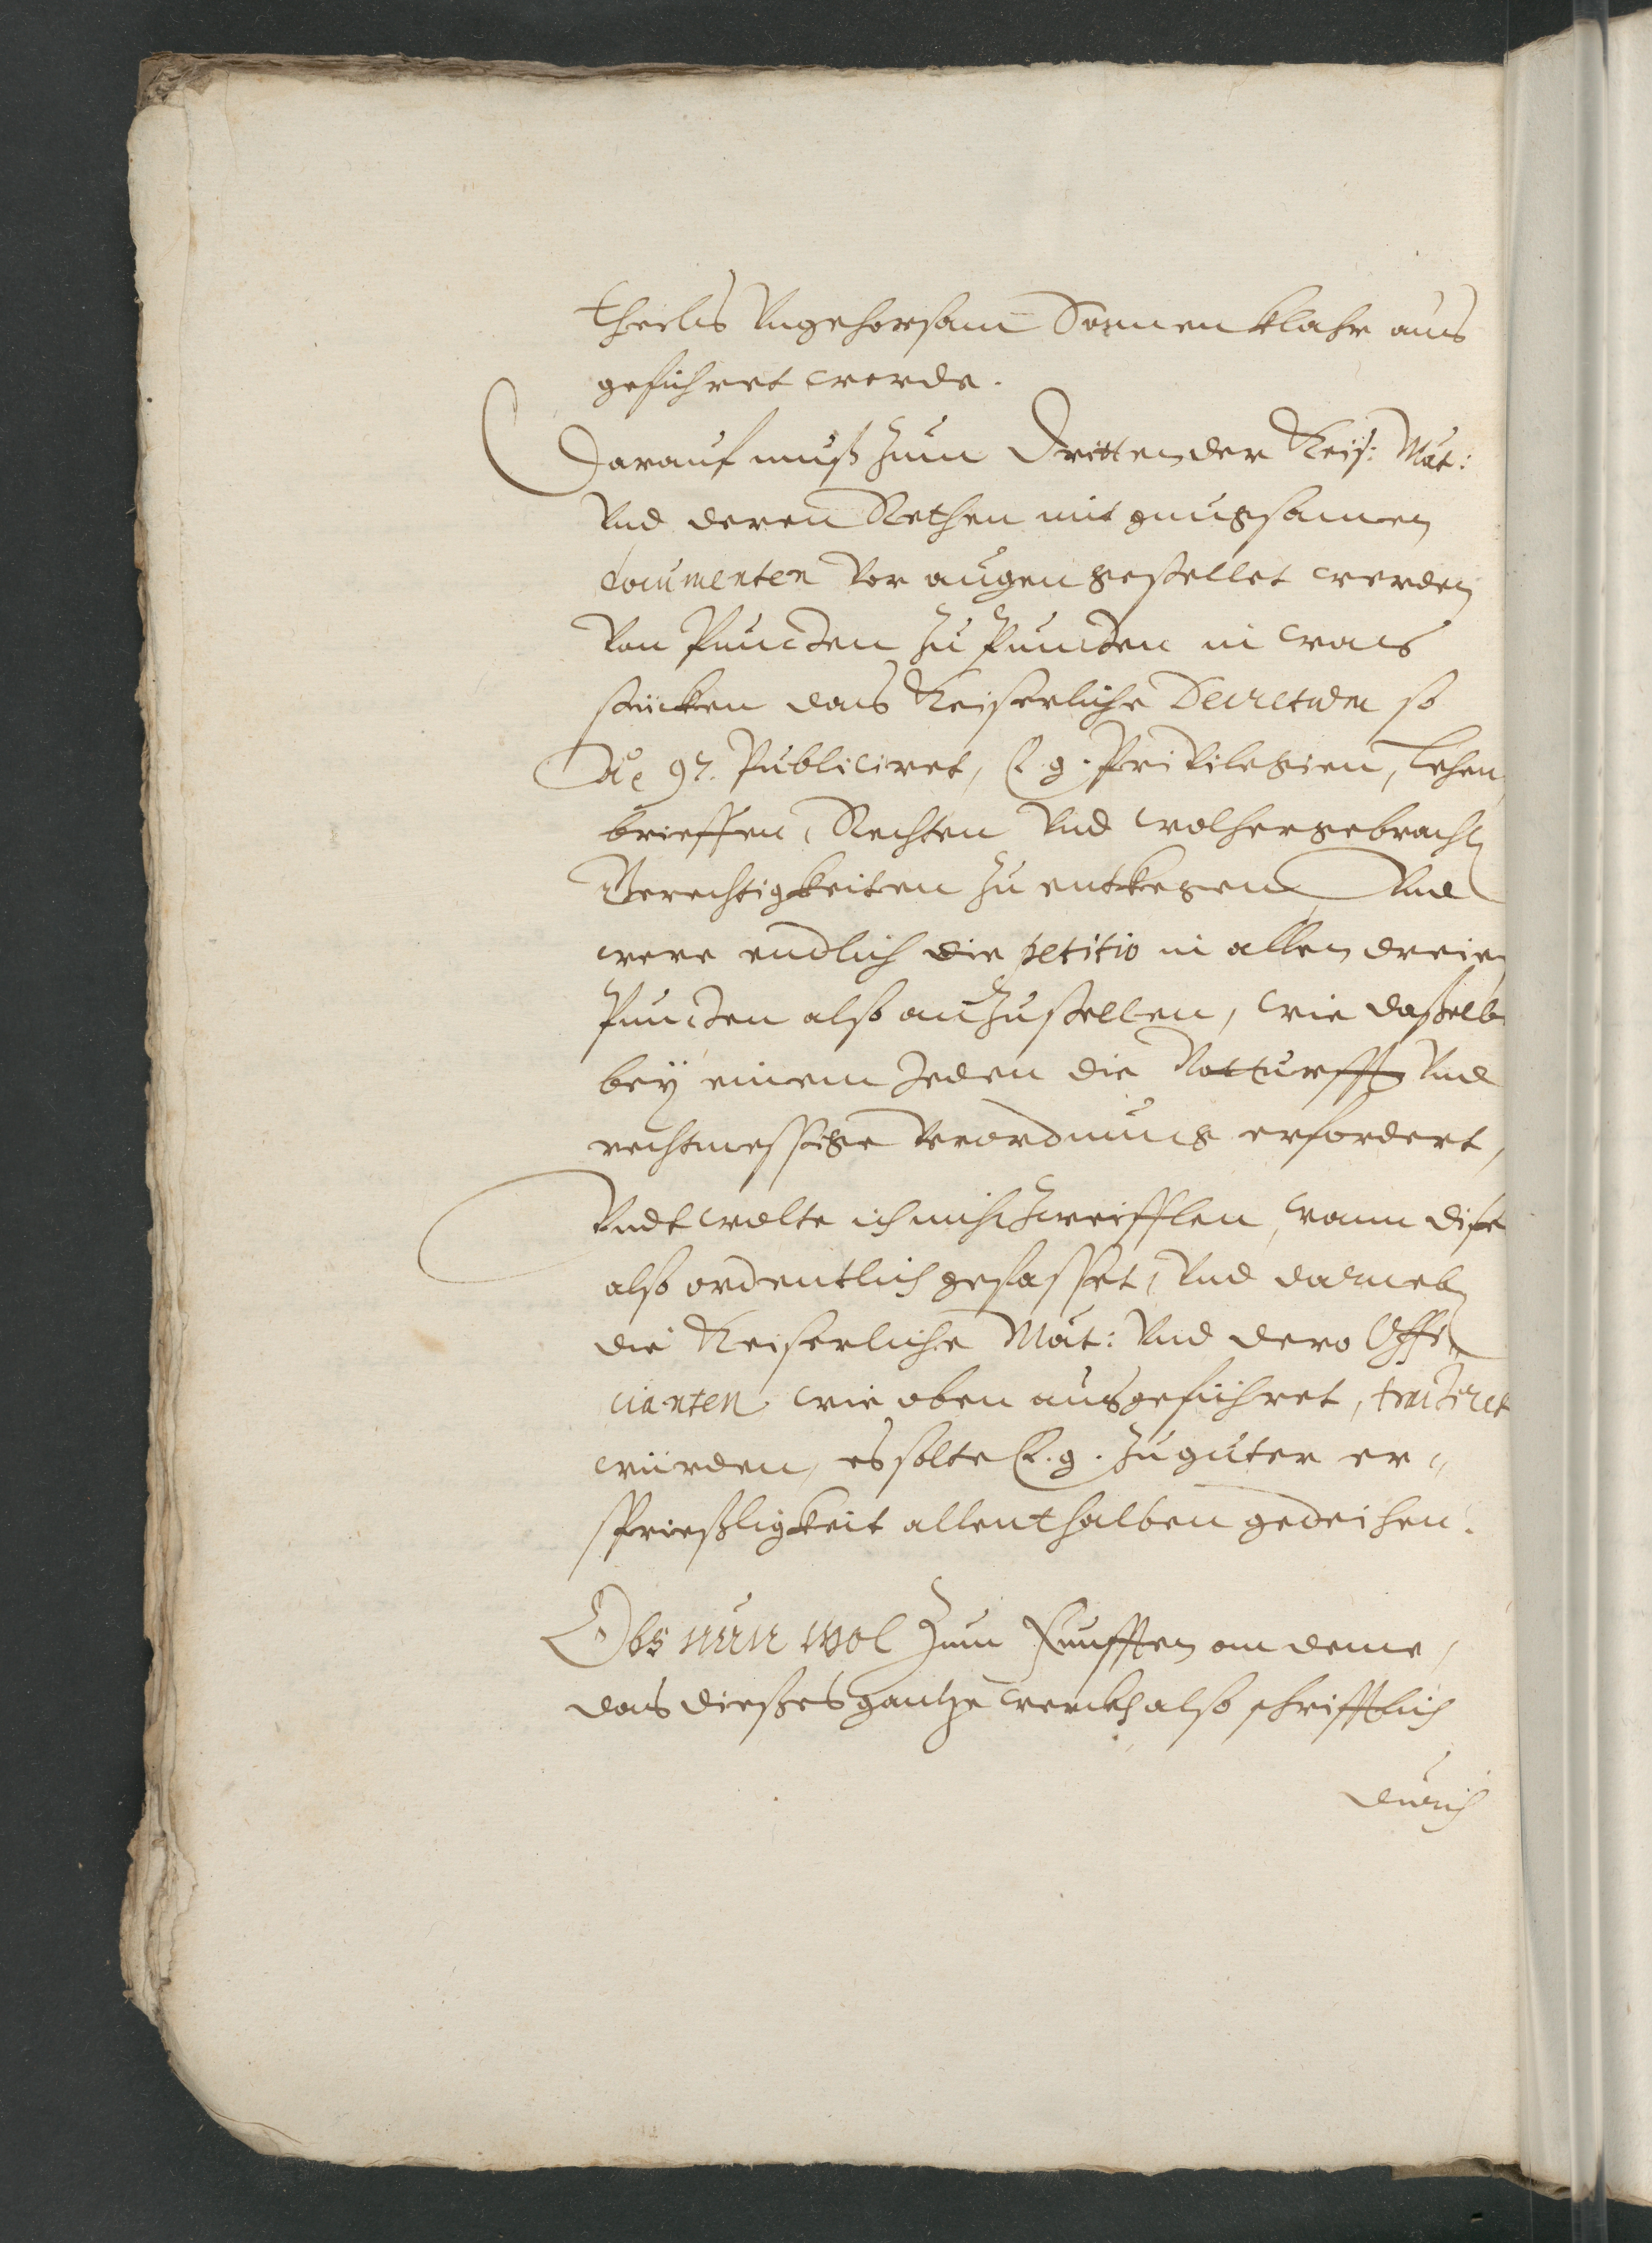 theils Ungehorsam Sonnenklahr aus
geführet werde.
Darauf muß zum Dritten der Keis: Mät:
Und deren Rethen mit gnugsamen
documenten Vor augen gestellet werden
Von Puncten zu Puncten in was
stücken das Keiserliche Decretum so
Aº 97. Publiciret, E. g. Privilegien, Lehen
brieffen, Rechten Und wolhergebrachten
Gerechtigkeiten zu entkegen Und
were endlich die petitio in allen dreien
Puncten also anzustellen, wie dasselb
bey einem Jeden die Notturfft Und
rechtmessige Verordnung erfordert,
Undt wolte ich nicht zweifflen, wann dise
also ordentlich gefasset, Und darneben
die Keiserliche Mät: Und dero Offi
cianten wie oben ausgeführet, tractiret
würden, es solte E. g. zu guter er„
sprießligkeit allenthalben gedeihen.
Obs nun wol zum Funfften an deme,
das dießes gantze werckh also schrifftlich
durch